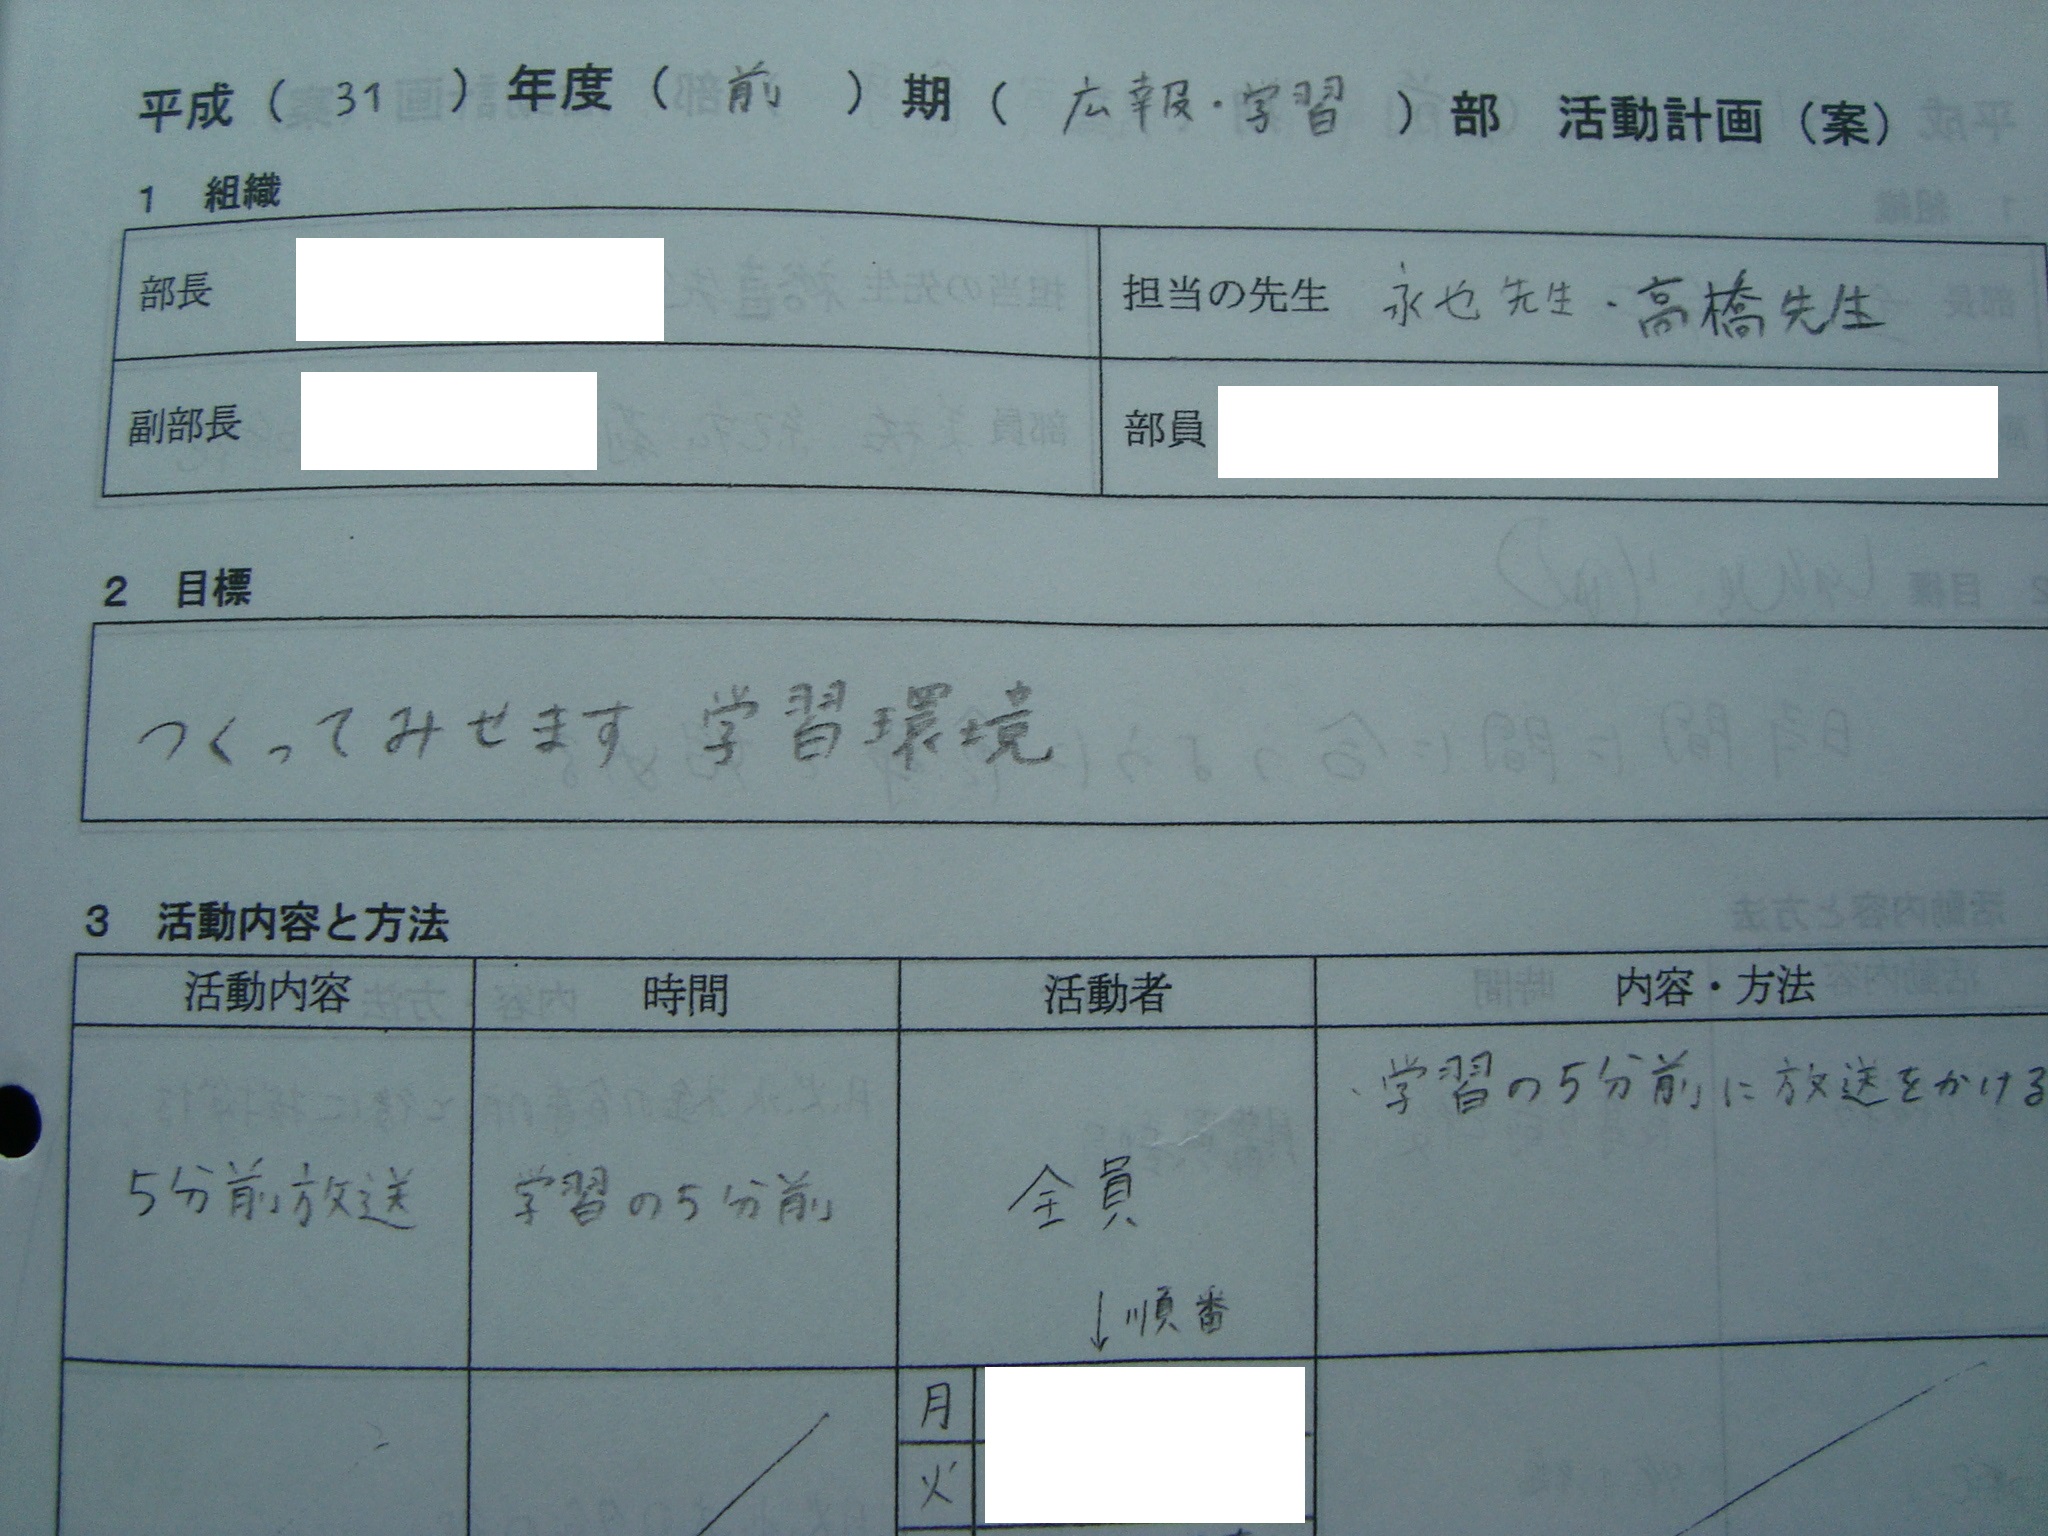 平成（31）年度（前）期（広報・学習）部 活動計画（案）
1 組織
部長
担当の先生 永也先生・高橋先生
副部長
部員
2 目標
つくってみせます 学習環境
3 活動内容と方法
活動内容 時間 活動者 内容・方法
・学習の5分前に放送をかける
5分前放送 学習の5分前 全員
↓順番
月
火